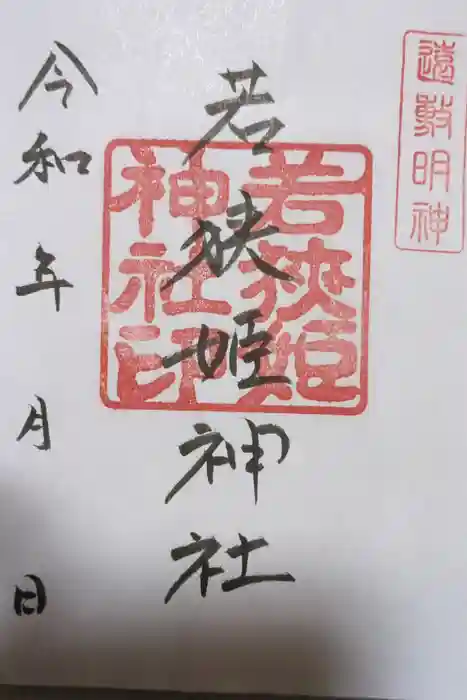 遠敷明神
若狹姫
神社印
若狭姫神社
令和 年 月 日